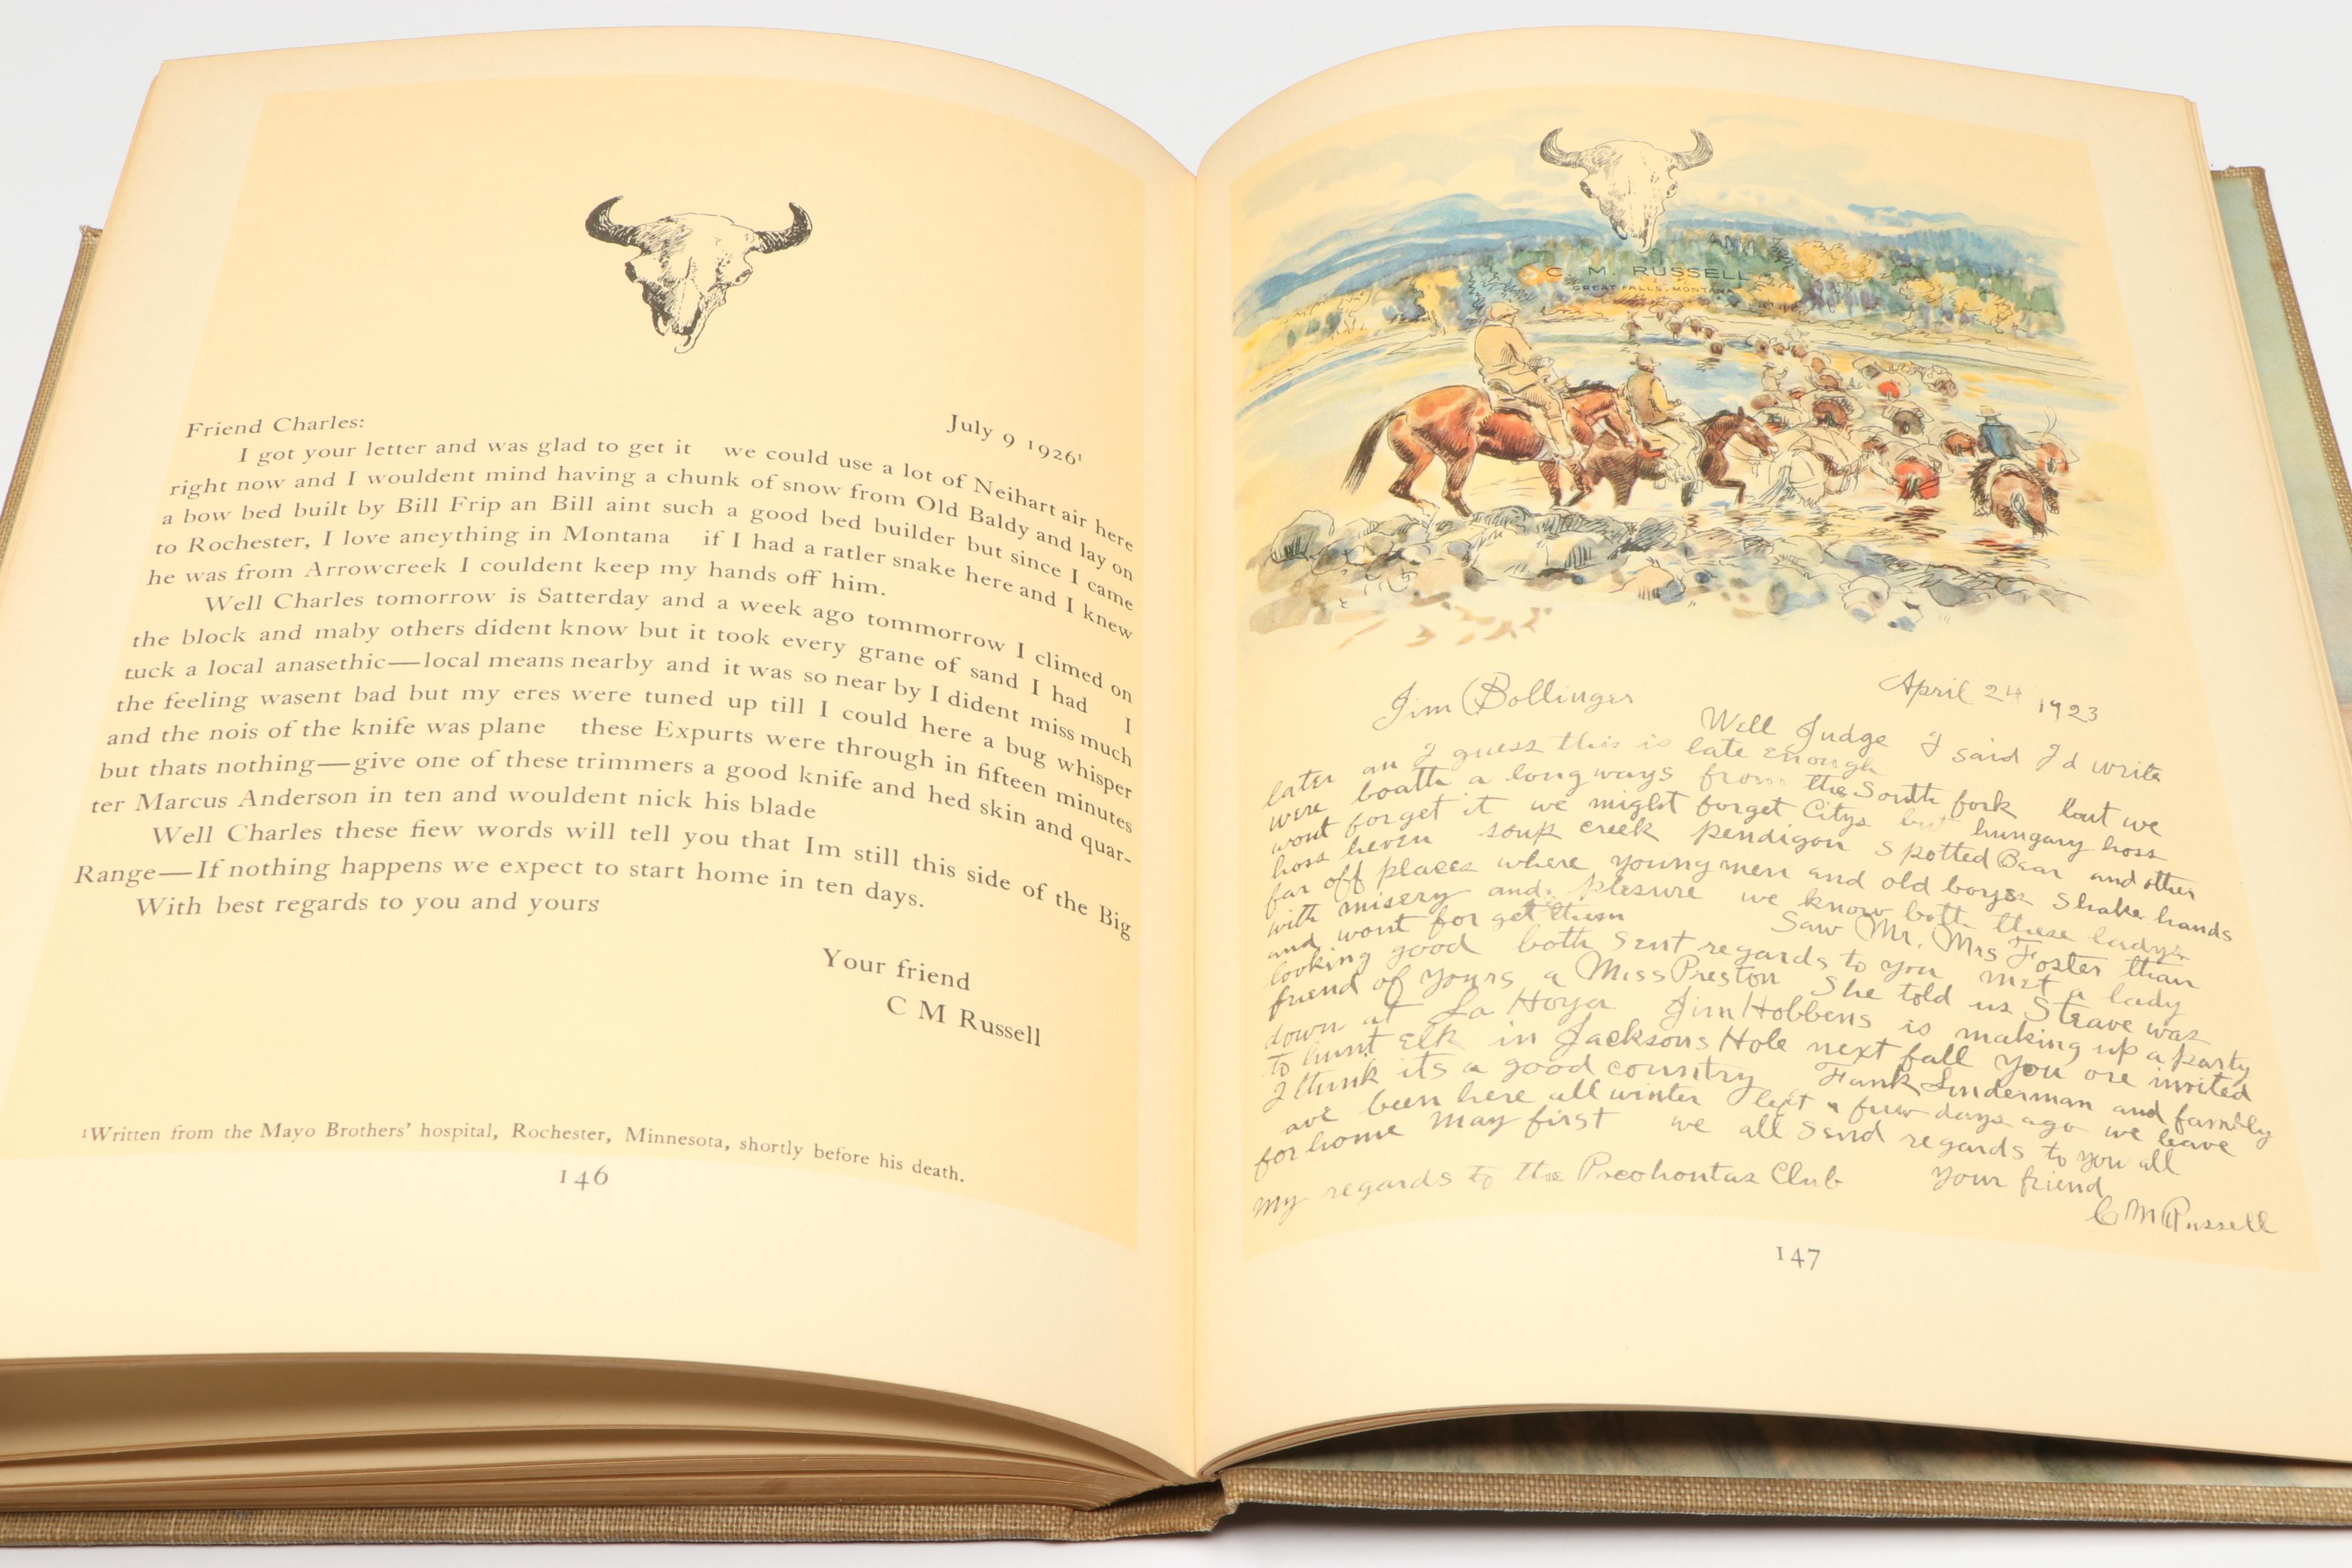 July 9 1926¹
Friend Charles:
I got your letter and was glad to get it we could use a lot of Neihart air here
right now and I wouldent mind having a chunk of snow from Old Baldy and lay on
a bow bed built by Bill Frip an Bill aint such a good bed builder but since I came
to Rochester, I love aneything in Montana if I had a ratler snake here and I knew
he was from Arrowcreek I couldent keep my hands off him.
Well Charles tomorrow is Satterday and a week ago tommorrow I climed on
the block and maby others dident know but it took every grane of sand I had I
tuck a local anasethic—local means nearby and it was so near by I dident miss much
the feeling wasent bad but my eres were tuned up till I could here a bug whisper
and the nois of the knife was plane these Expurts were through in fifteen minutes
but thats nothing—give one of these trimmers a good knife and hed skin and quar-
ter Marcus Anderson in ten and wouldent nick his blade
Well Charles these fiew words will tell you that Im still this side of the Big
Range—If nothing happens we expect to start home in ten days.
With best regards to you and yours
Your friend
C M Russell
¹Written from the Mayo Brothers' hospital, Rochester, Minnesota, shortly before his death.
146
C. M. RUSSELL
GREAT FALLS, MONTANA
April 24 1923
Jim Bollinger
Well Judge I said I'd write
later an I guess this is late enough
were boath a long ways from the South fork but we
wont forget it we might forget Citys but hungary hoss
hoss heven soup creek pendigon Spotted Baar and other
far off places where young men and old boys shake hands
with misery and plesure we know both these ladys
and wont for get them Saw Mr. Mrs Foster than
looking good both sent regards to you met a lady
friend of yours a Miss Preston She told us Steave was
down at La Hoya Jim Hobbens is making up a party
to hunt Elk in Jacksons Hole next fall you are invited
I think its a good country Fank Linderman and fambly
ave been here all winter left a fuw days ago we leave
for home May first we all send regards to you all
my regards to the Pocohontas Club your friend
C M Russell
147